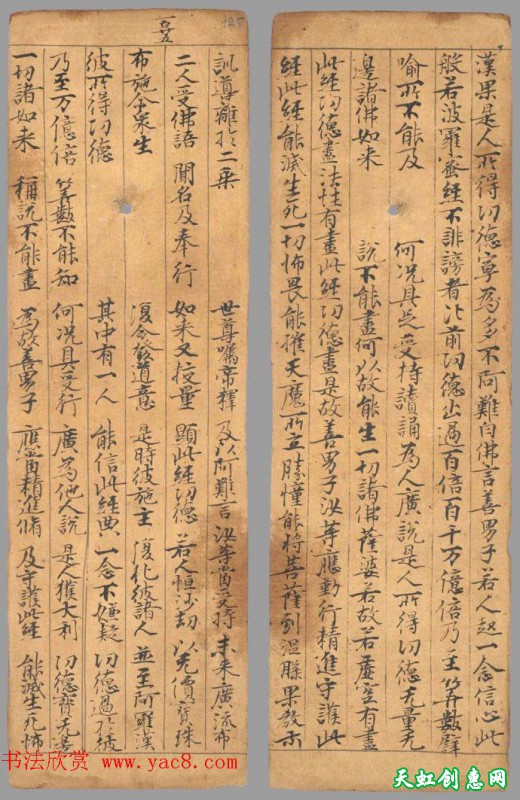 漢果是人所得功德寧為多不阿難白佛言善男子若人起一念信心此
般若波羅蜜經不誹謗者比前功德出過百倍百千万億倍乃至筭數譬
喻所不能及 何況具足受持讀誦為人廣說是人所得功德无量无
邊諸佛如来 說不能盡何以故能生一切諸佛薩婆若故若虛空有盡
此經功德盡法性有盡此經功德盡是故善男子汝等應勤行精進守護此
經此經能滅生死一切怖畏能摧天魔所立勝幢能将菩薩到涅槃果教示
一百五
125
訓導離於二乘 世尊囑帝釋 及以阿難言 汝等受持 未来廣流布
二人受佛語 聞名及奉行 如来又挍量 顯此經功德 若人恒沙劫 以无價寶珠
布施众生 復令發道意 是時彼施主 復化彼諸人 並至阿羅漢
彼所得功德 其中有一人 能信此經典 一念不嫌疑 功德過於彼
乃至万億倍 筭數不能知 何況具受行 廣為他人說 是人獲大利 功德
一切諸如来 稱說不能盡 為故善男子 應當精進脩 及守護此經 能滅生死怖
书法欣赏 www.yac8.com
天虹创意网